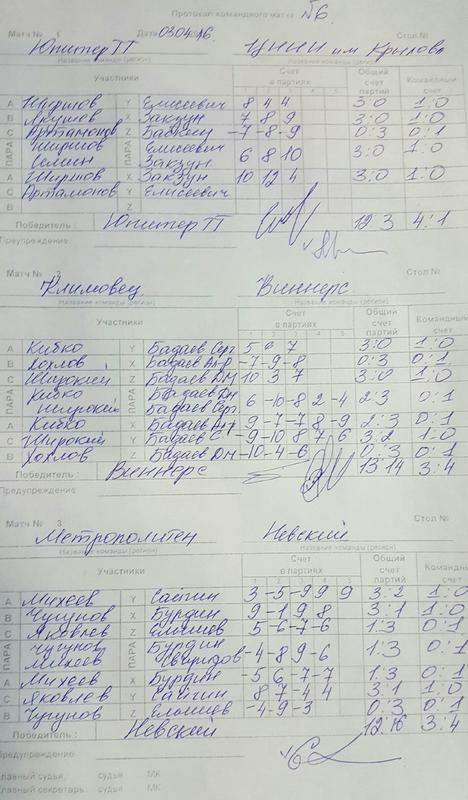 Протокол командного матча №6
Матч № 1 Дата 030416 Стол №
Юпитер П ЦНИИ им Крылова
Название команды (регион) Название команды (регион)
Участники Счет в партиях Общий счет партий Командный счет
1 2 3 4 5
А Ширшов Y Елисеевич 8 4 4 3:0 1:0
В Якушев X Закзун 7 8 9 3:0 1:0
С Артамонов Z -7-8-9 0:3 0:1
ПАРА Ширшов ПАРА Елисеевич
Семин Закзун 6 8 10 3:0 1:0
А Ширшов X Закзун 10 12 4 3:0 1:0
С Артамонов Y Елисеевич
В Z
Победитель: Юпитер П 12 3 4:1
Предупреждение
Матч № 2 Стол №
Климовец Виннерс
Название команды (регион) Название команды (регион)
Участники Счет в партиях Общий счет партий Командный счет
1 2 3 4 5
А Кибко Y Бадаев Серг 5 6 7 3:0 1:0
В Хохлов X Бадаев Ал-р -7-9-8 0:3 0:1
С Широкий Z Бадаев Дм 10 3 7 3:0 1:0
ПАРА Кибко ПАРА Бадаев Дм
Широкий Бадаев Серг. 6-10-8 2-4 2:3 0:1
А Кибко X Бадаев -9-7-7 8-9 2:3 0:1
С Широкий Y Бадаев С -9-10 8 7 6 3:2 1:0
В Хохлов Z Бадаев Дм -10-4-6 0:3 0:1
Победитель: Виннерс 13 14 3:4
Предупреждение
Матч № 3. Стол №
Метрополитен Невский
Название команды (регион) Название команды (регион)
Участники Счет в партиях Общий счет партий Командный счет
1 2 3 4 5
А Михеев Y Сайгин 3-5-9 9 9 3:2 1:0
В Чугунов X Бурдин 9-1 9 8 3:1 1:0
С Яковлев Z 5-6-7-6 1:3 0:1
ПАРА Чугунов ПАРА Бурдин
Михеев Свиридов -4 8 9-6 1:3 0:1
А Михеев X Бурдин -5 6-7-7 1:3 0:1
С Яковлев Y Сайгин 8 7-4 4 3:1 1:0
В Чугунов Z -4-9-3 0:3 0:1
Победитель: Невский 12:16 3:4
Предупреждение
Главный судья, судья МК
Главный секретарь, судья МК